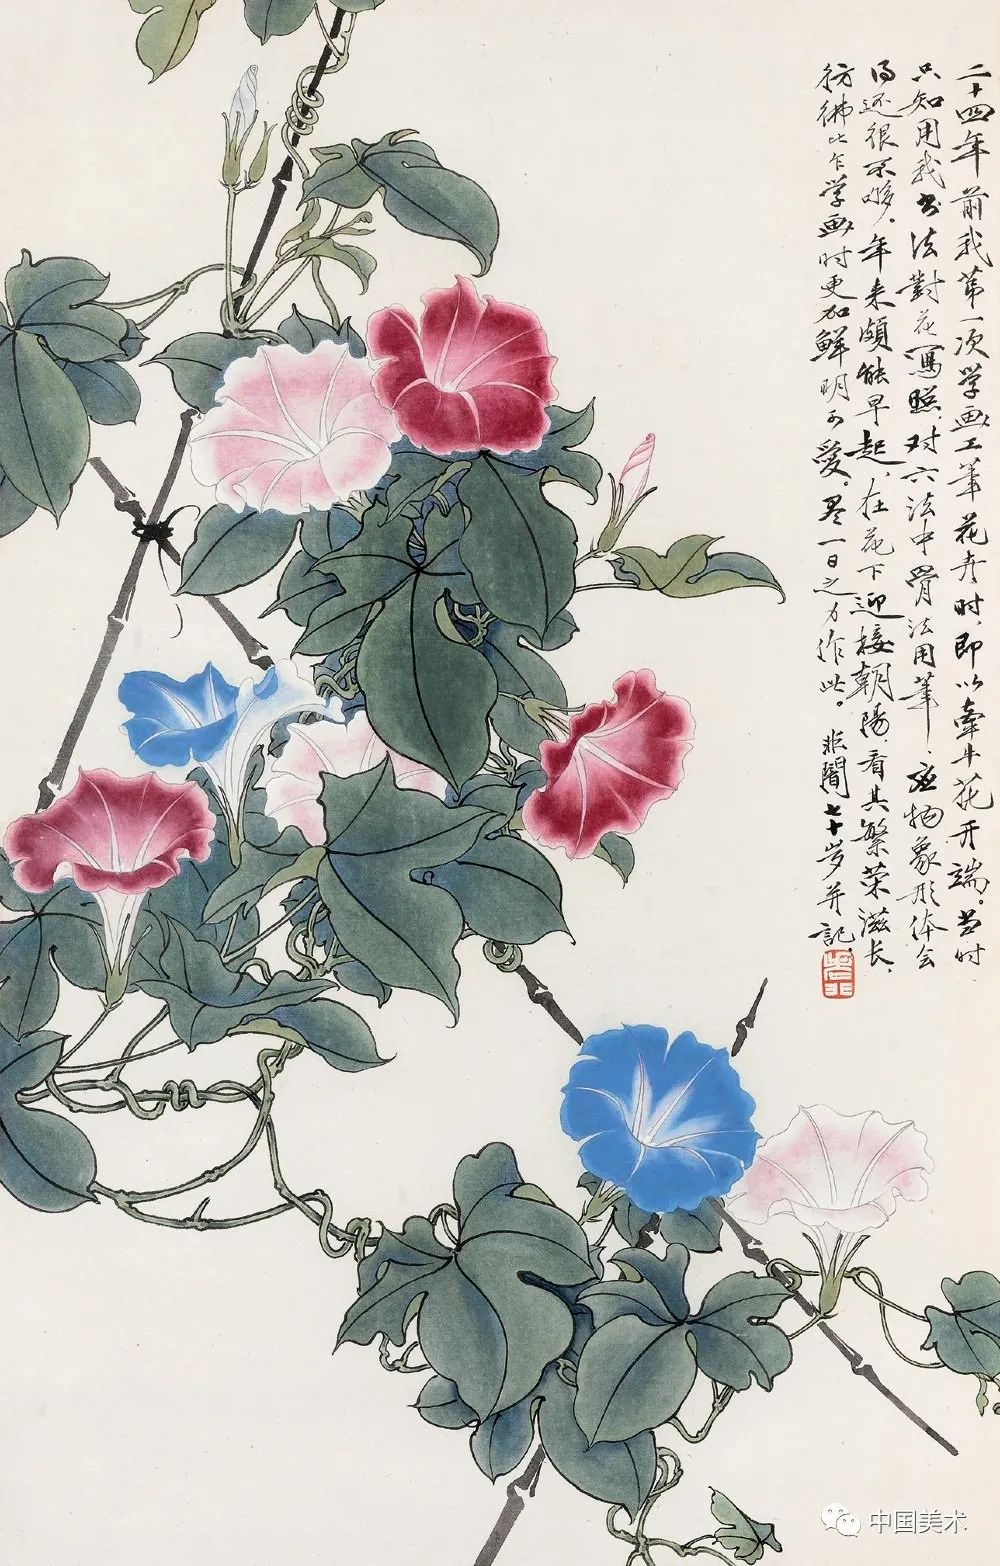 二十四年前我第一次学画工筆花卉时，即以牽牛花开端。当时
只知用我书法對花寫照，对六法中骨法用筆、应物象形体会
得还很不够。年来頗能早起，在花下迎接朝陽，看其繁荣滋长，
彷彿比乍学画时更加鮮明可愛。尽一日之力作此。非闇七十岁并記。
中国美术